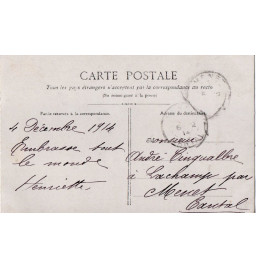 CARTE POSTALE
Tous les pays étrangers n'acceptent pas la correspondance au recto
(Se renseigner à la poste)
Partie réservée à la correspondance
Adresse du destinataire
4 Décembre 1914
Embrasse tout
le monde
Henriette
Monsieur
André
à Lachamp par
Menet
Cantal